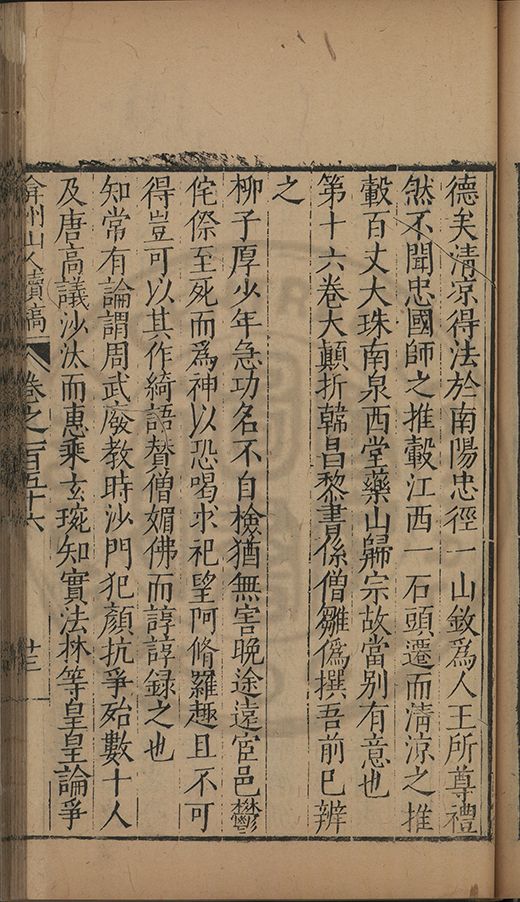 德矣清凉得法於南陽忠徑一山欽爲人王所尊禮
然不聞忠國師之推轂江西一石頭遷而清涼之推
轂百丈大珠南泉西堂藥山歸宗故當别有意也
第十六卷大顛折韓昌黎書係僧雛僞撰吾前已辨
之
柳子厚少年急功名不自檢猶無害晚途遠宦邑鬱
侘傺至死而爲神以恐喝求祀望阿脩羅趣且不可
得豈可以其作綺語賛僧媚佛而諄諄録之也
知常有論謂周武廢教時沙門犯顔抗爭殆數十人
及唐高議沙汰而惠乘玄琬知實法林等皇皇論爭
弇州山人續稿 卷之一百五十六 廿三